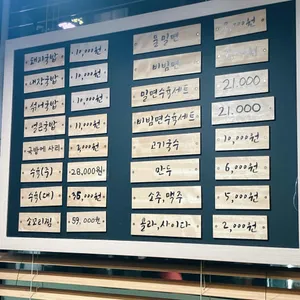 돼지국밥 10,000원
내장국밥 10,000원
섞어국밥 10,000원
얼큰국밥 11,000원
국밥에 사리 3,000원
수육(중) 28,000원
수육(대) 38,000원
소꼬리찜 59,000원
물밀면 ,000원
비빔면
밀면수육세트 21.000
비빔면수육세트 21.000
고기국수 10,000원
만두 6,000원
소주,맥주 5,000원
콜라,사이다 2,000원